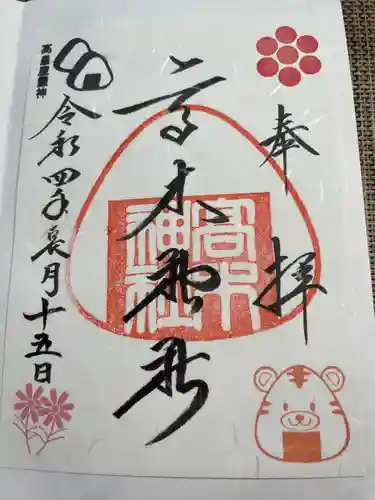 奉拝
高木神社
高木神社
令和四年長月十五日
高皇産霊神